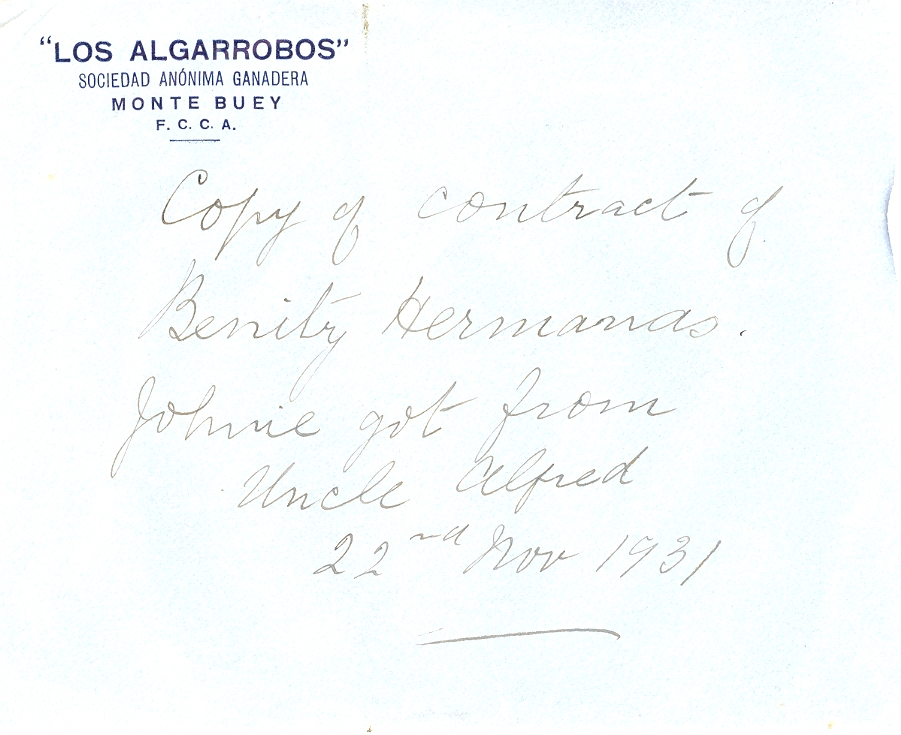 "LOS ALGARROBOS"
SOCIEDAD ANÓNIMA GANADERA
MONTE BUEY
F. C. C. A.
Copy of contract of
Benitz Hermanas.
Johnie got from
Uncle Alfred
22nd Nov 1931